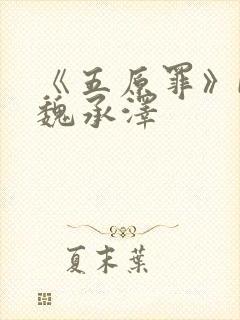 《五原罪》
魏承泽
夏末葉